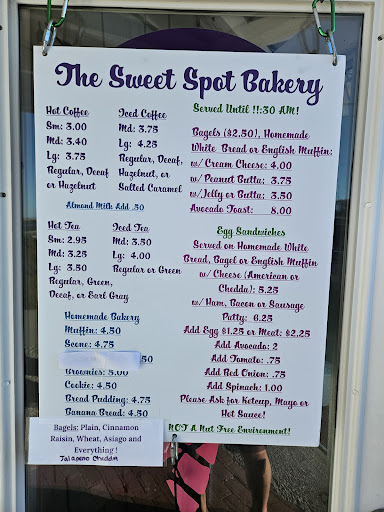 The Sweet Spot Bakery
Hot Coffee
Sm: 3.00
Md: 3.40
Lg: 3.75
Regular, Decaf
or Hazelnut
Iced Coffee
Md: 3.75
Lg: 4.25
Regular, Decaf,
Hazelnut, or
Salted Caramel
Almond Milk Add .50
Hot Tea
Sm: 2.95
Md: 3.25
Lg: 3.50
Regular, Green,
Decaf, or Earl Gray
Iced Tea
Md: 3.50
Lg: 4.00
Regular or Green
Homemade Bakery
Muffin: 4.50
Scone: 4.75
.50
Brownies: 5.00
Cookie: 4.50
Bread Pudding: 4.75
Banana Bread: 4.50
Served Until !!:30 AM!
Bagels ($2.50), Homemade
White Bread or English Muffin:
w/ Cream Cheese: 4.00
w/ Peanut Butta: 3.75
w/Jelly or Butta: 3.50
Avocado Toast: 8.00
Egg Sandwiches
Served on Homemade White
Bread, Bagel or English Muffin
w/ Cheese (American or
Chedda): 5.25
w/ Ham, Bacon or Sausage
Patty: 6.25
Add Egg $1.25 or Meat: $2.25
Add Avocado: 2
Add Tomato: .75
Add Red Onion: .75
Add Spinach: 1.00
Please Ask for Keteup, Mayo or
Hot Sauce!
NOT A Nut Free Environment!
Bagels: Plain, Cinnamon
Raisin, Wheat, Asiago and
Everything !
Jalapeno Cheddar